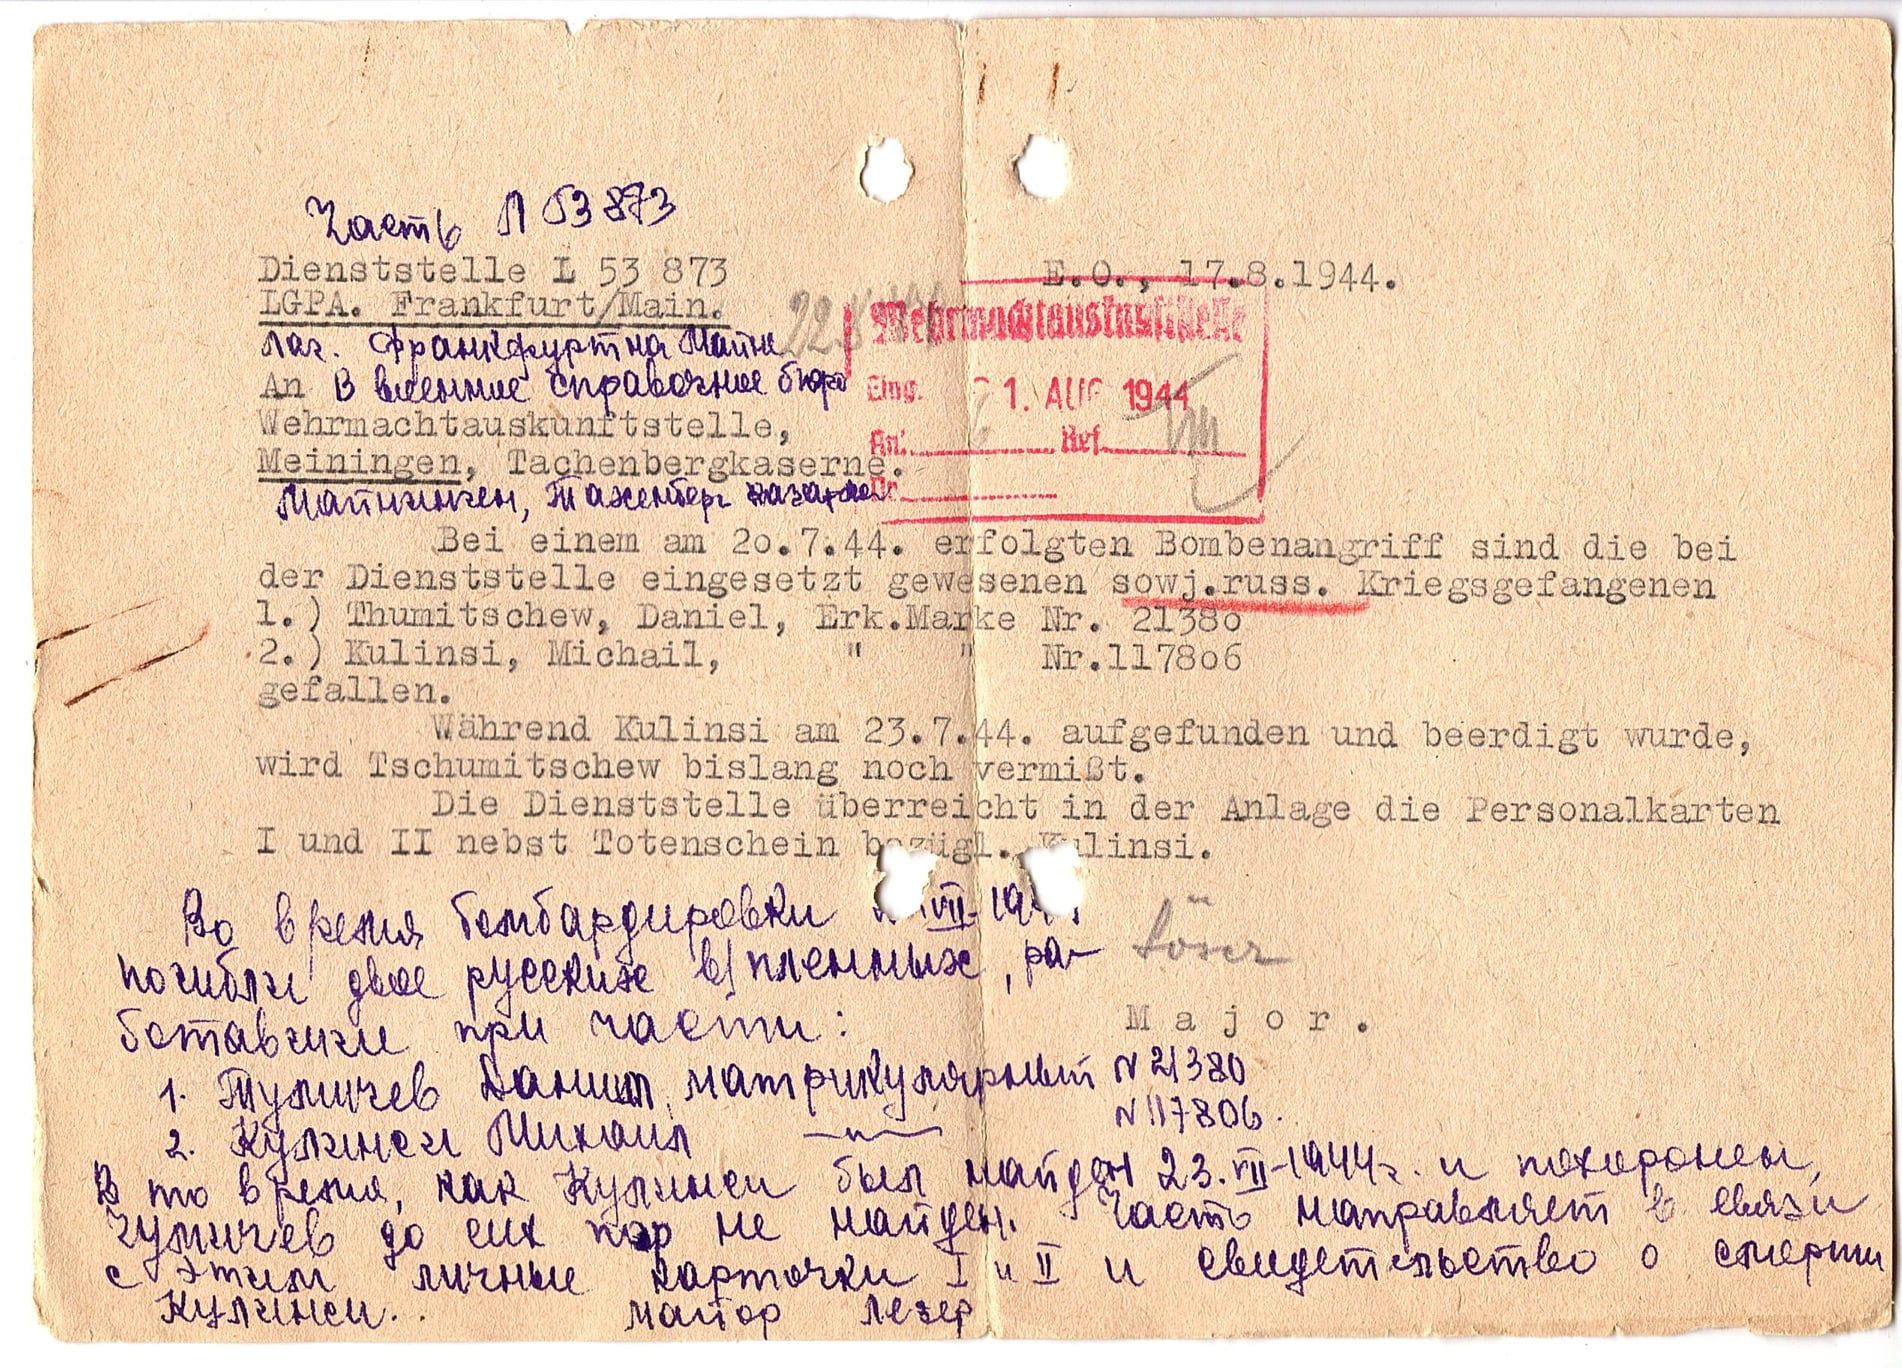 Часть Л 53 873
Dienststelle L 53 873
E.O., 17.8.1944.
LGPA. Frankfurt/Main.
лаг. Франкфурт на Майне
Wehrmachtauskunftstelle
An В военное справочное бюро
Eing. 21. AUG 1944
Wehrmachtauskunftstelle,
Anl. Ref.
Meiningen, Tachenbergkaserne.
Майнинген, Тахенберг казарме
Bei einem am 2o.7.44. erfolgten Bombenangriff sind die bei
der Dienststelle eingesetzt gewesenen sowj.russ. Kriegsgefangenen
1.) Thumitschew, Daniel, Erk.Marke Nr. 2138o
2.) Kulinsi, Michail, " " Nr.1178o6
gefallen.
Während Kulinsi am 23.7.44. aufgefunden und beerdigt wurde,
wird Tschumitschew bislang noch vermißt.
Die Dienststelle überreicht in der Anlage die Personalkarten
I und II nebst Totenschein bezügl. Kulinsi.
Во время бомбардировки VII-1944
погибли двое русских в/пленных, ра-
ботавшие при части:
Löser
Major.
1. Тумичев Даниил, матрикулярный N 21380
2. Кулинси Михаил —"— N 117806.
В то время, как Кулинси был найден 23.VII-1944г. и похоронен,
Чумичев до сих пор не найден. Часть направляет в связи
с этим личные карточки I и II и свидетельство о смерти
Кулинси. майор Лезер